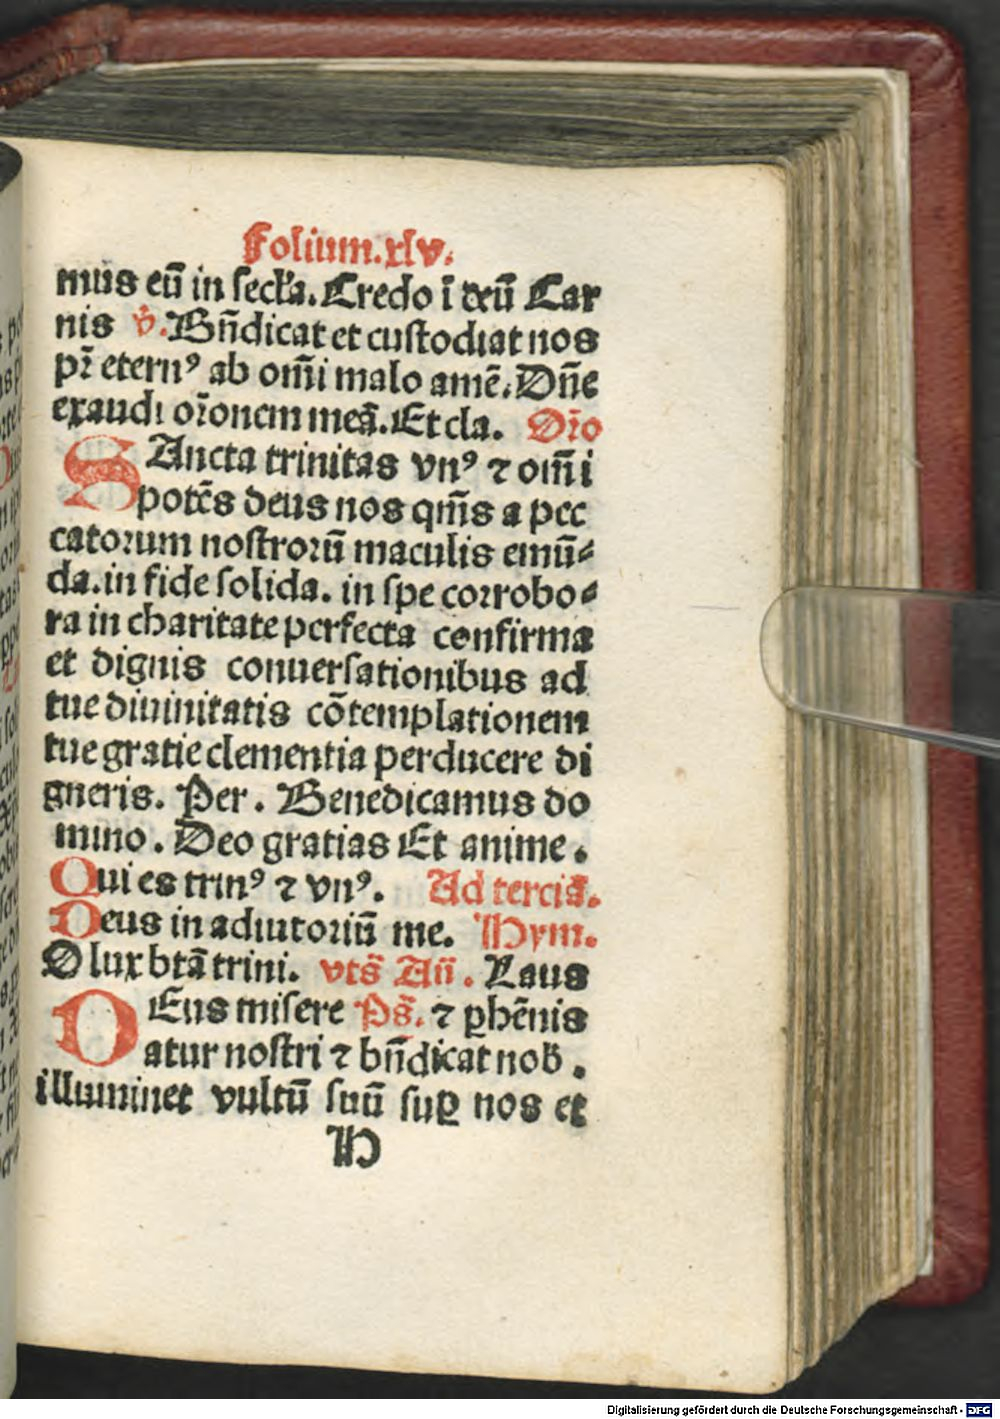 Folium.xlv.
mus eū in secl'a. Credo ī deū Car
nis v̄. Bn̄dicat et custodiat nos
pr̄ eternꝰ ab om̄i malo amē. Dn̄e
exaudi or̄onem meā. Et cla. Or̄o
SAncta trinitas vnꝰ ⁊ om̄i
potēs deus nos qm̄s a pec
catorum nostrorū maculis emū⸗
da. in fide solida. in spe corrobo⸗
ra in charitate perfecta confirma
et dignis conuersationibus ad
tue diuinitatis cōtemplationem
tue gratie clementia perducere di
gneris. Per. Benedicamus do
mino. Deo gratias Et anime.
Qui es trinꝰ ⁊ vnꝰ. Ad terciā.
Deus in adiutoriū me. Hym.
O lux btā trini. vts̄ Añ. Laus
DEus misere Ps̄. ⁊ ꝑhēnis
atur nostri ⁊ bn̄dicat nob̄.
illuminet vultū suū suꝑ nos et
H
Digitalisierung gefördert durch die Deutsche Forschungsgemeinschaft - DFG